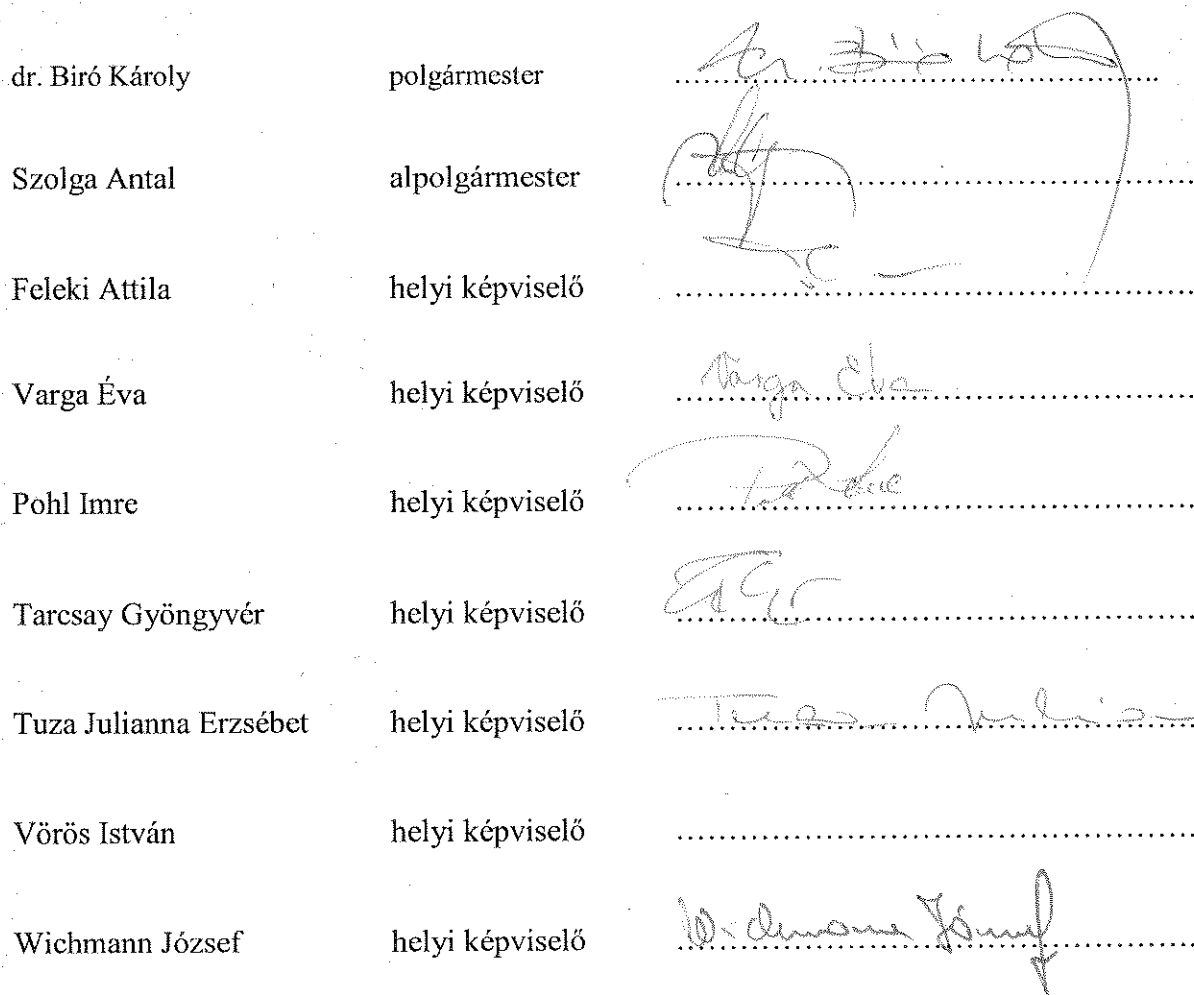 dr. Biró Károly polgármester
Szolga Antal alpolgármester
Feleki Attila helyi képviselő
Varga Éva helyi képviselő Varga Éva
Pohl Imre helyi képviselő
Tarcsay Gyöngyvér helyi képviselő
Tuza Julianna Erzsébet helyi képviselő
Vörös István helyi képviselő
Wichmann József helyi képviselő Wichmann József